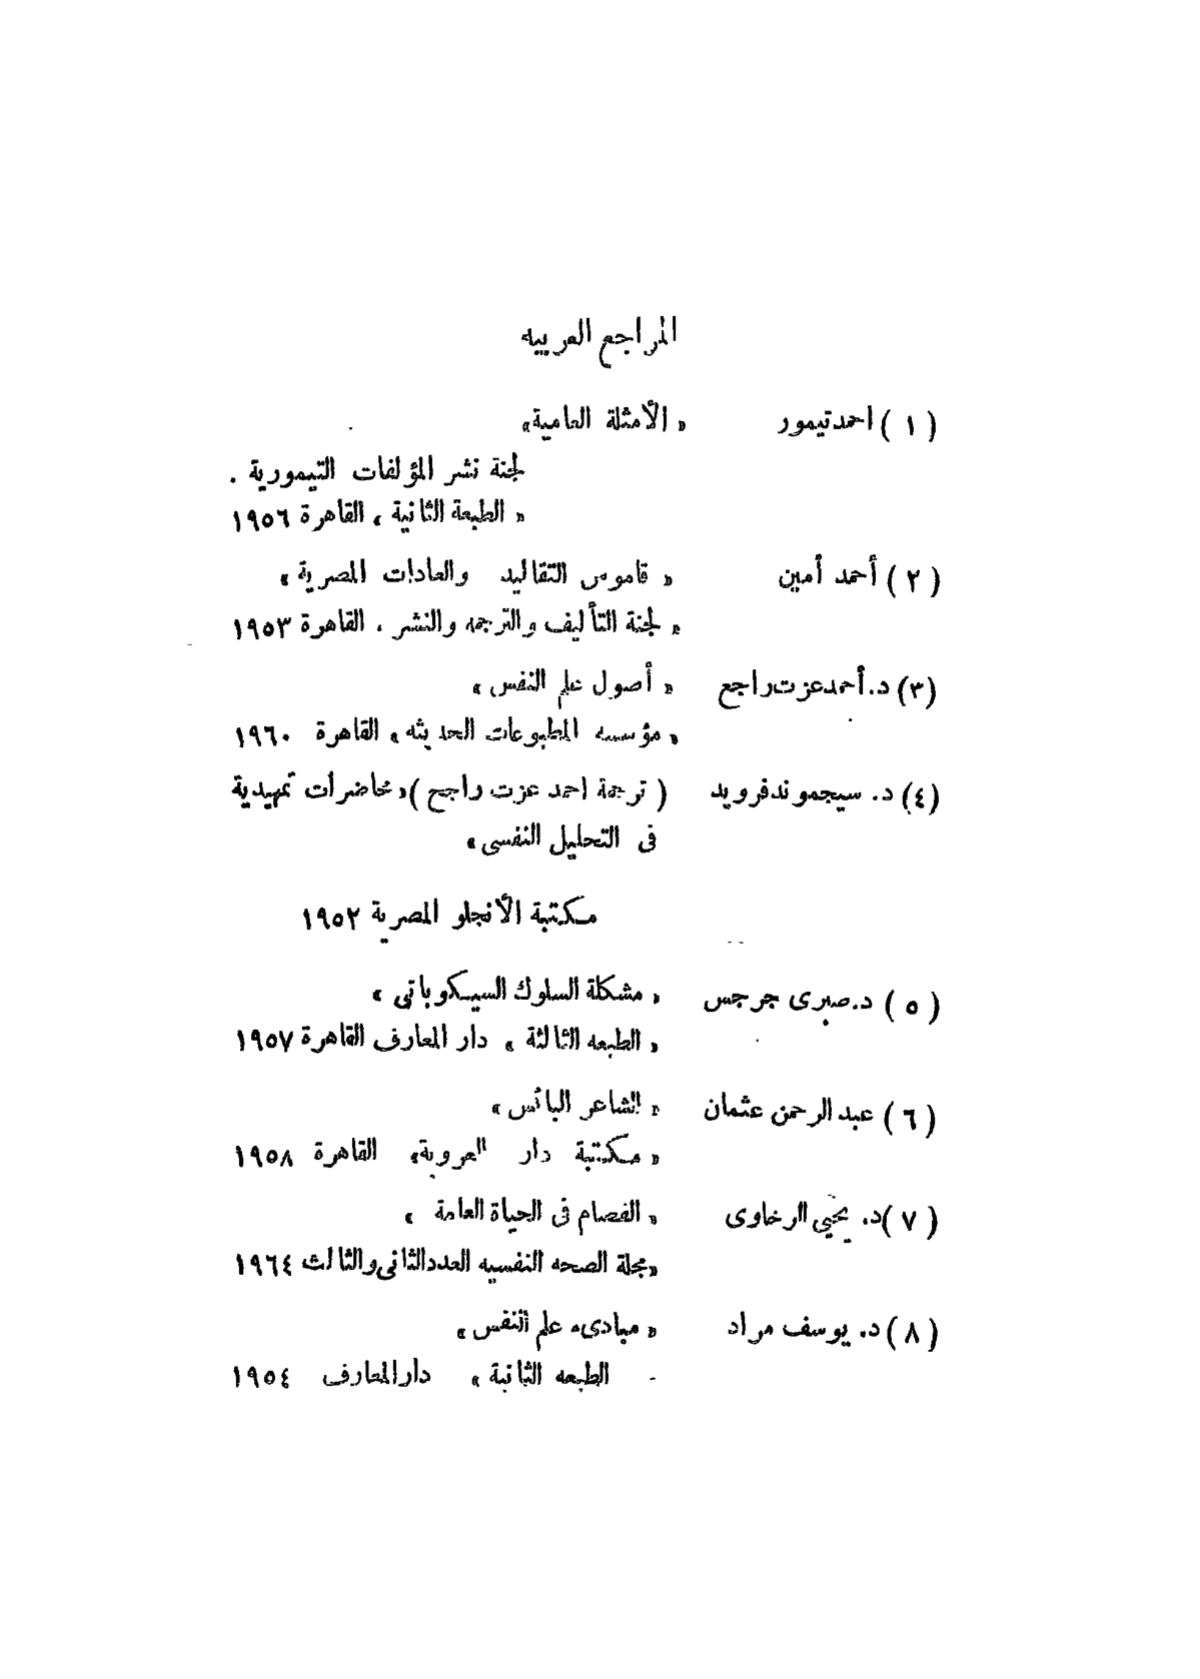 المراجع العربيه
( ١ ) احمد تيمور « الأمثلة العامية»
لجنة نشر المؤلفات التيمورية .
« الطبعة الثانية ، القاهرة ١٩٥٦
( ٢ ) أحمد أمين « قاموس التقاليد والعادات المصرية »
« لجنة التأليف والترجمه والنشر ، القاهرة ١٩٥٣
(٣) د. أحمد عزت راجع « أصول علم النفس »
« مؤسسه المطبوعات الحديثه » القاهرة ١٩٦٠
(٤) د. سيجموند فرويد ( ترجمة احمد عزت راجح )« محاضرات تمهيدية
فى التحليل النفسى »
مكتبة الأنجلو المصرية ١٩٥٢
( ٥ ) د. صبرى جرجس « مشكلة السلوك السيكوباتى »
« الطبعه الثالثة » دار المعارف القاهرة ١٩٥٧
( ٦ ) عبد الرحمن عثمان « الشاعر البائس »
« مكتبة دار العروبة» القاهرة ١٩٥٨
( ٧ )د. يحيي الرخاوى « الفصام فى الحياة العامة »
«مجلة الصحه النفسيه العدد الثانى والثالث ١٩٦٤
( ٨ ) د. يوسف مراد « مبادىء علم النفس »
- الطبعه الثانية » دار المعارف ١٩٥٤